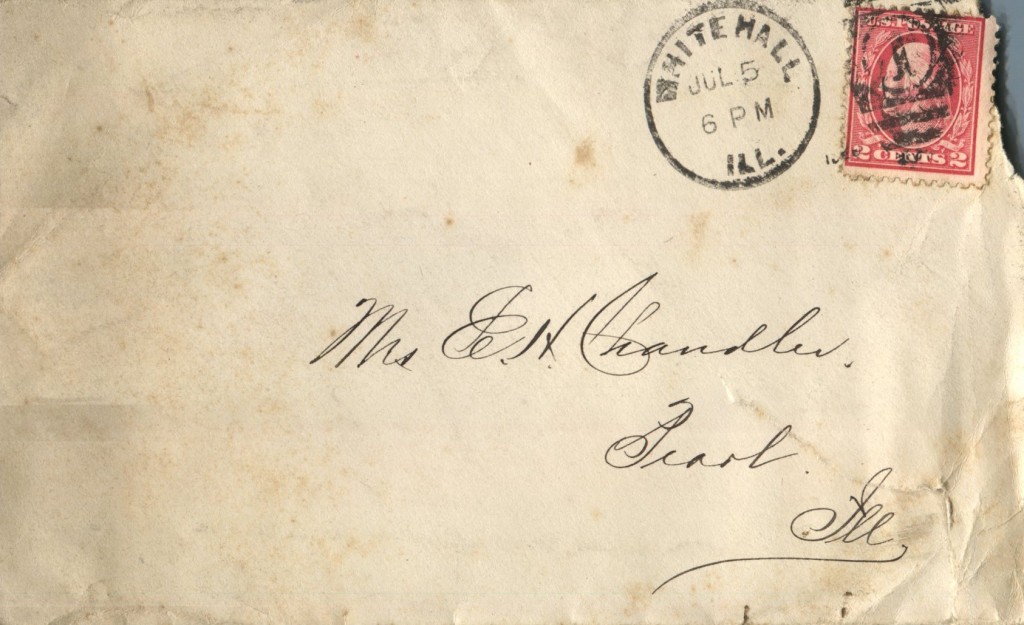 WHITE HALL
JUL 5
6 PM
ILL.
U.S. POSTAGE
2 CENTS 2
Mrs E. H. Chandler.
Pearl.
Ill,